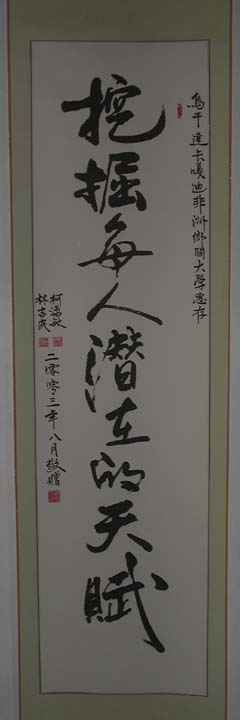 烏干達卡嘎迪非洲鄉間大學惠存
挖掘每人潛在的天賦
柯濡敏
林吉民
二零零三年八月敬贈